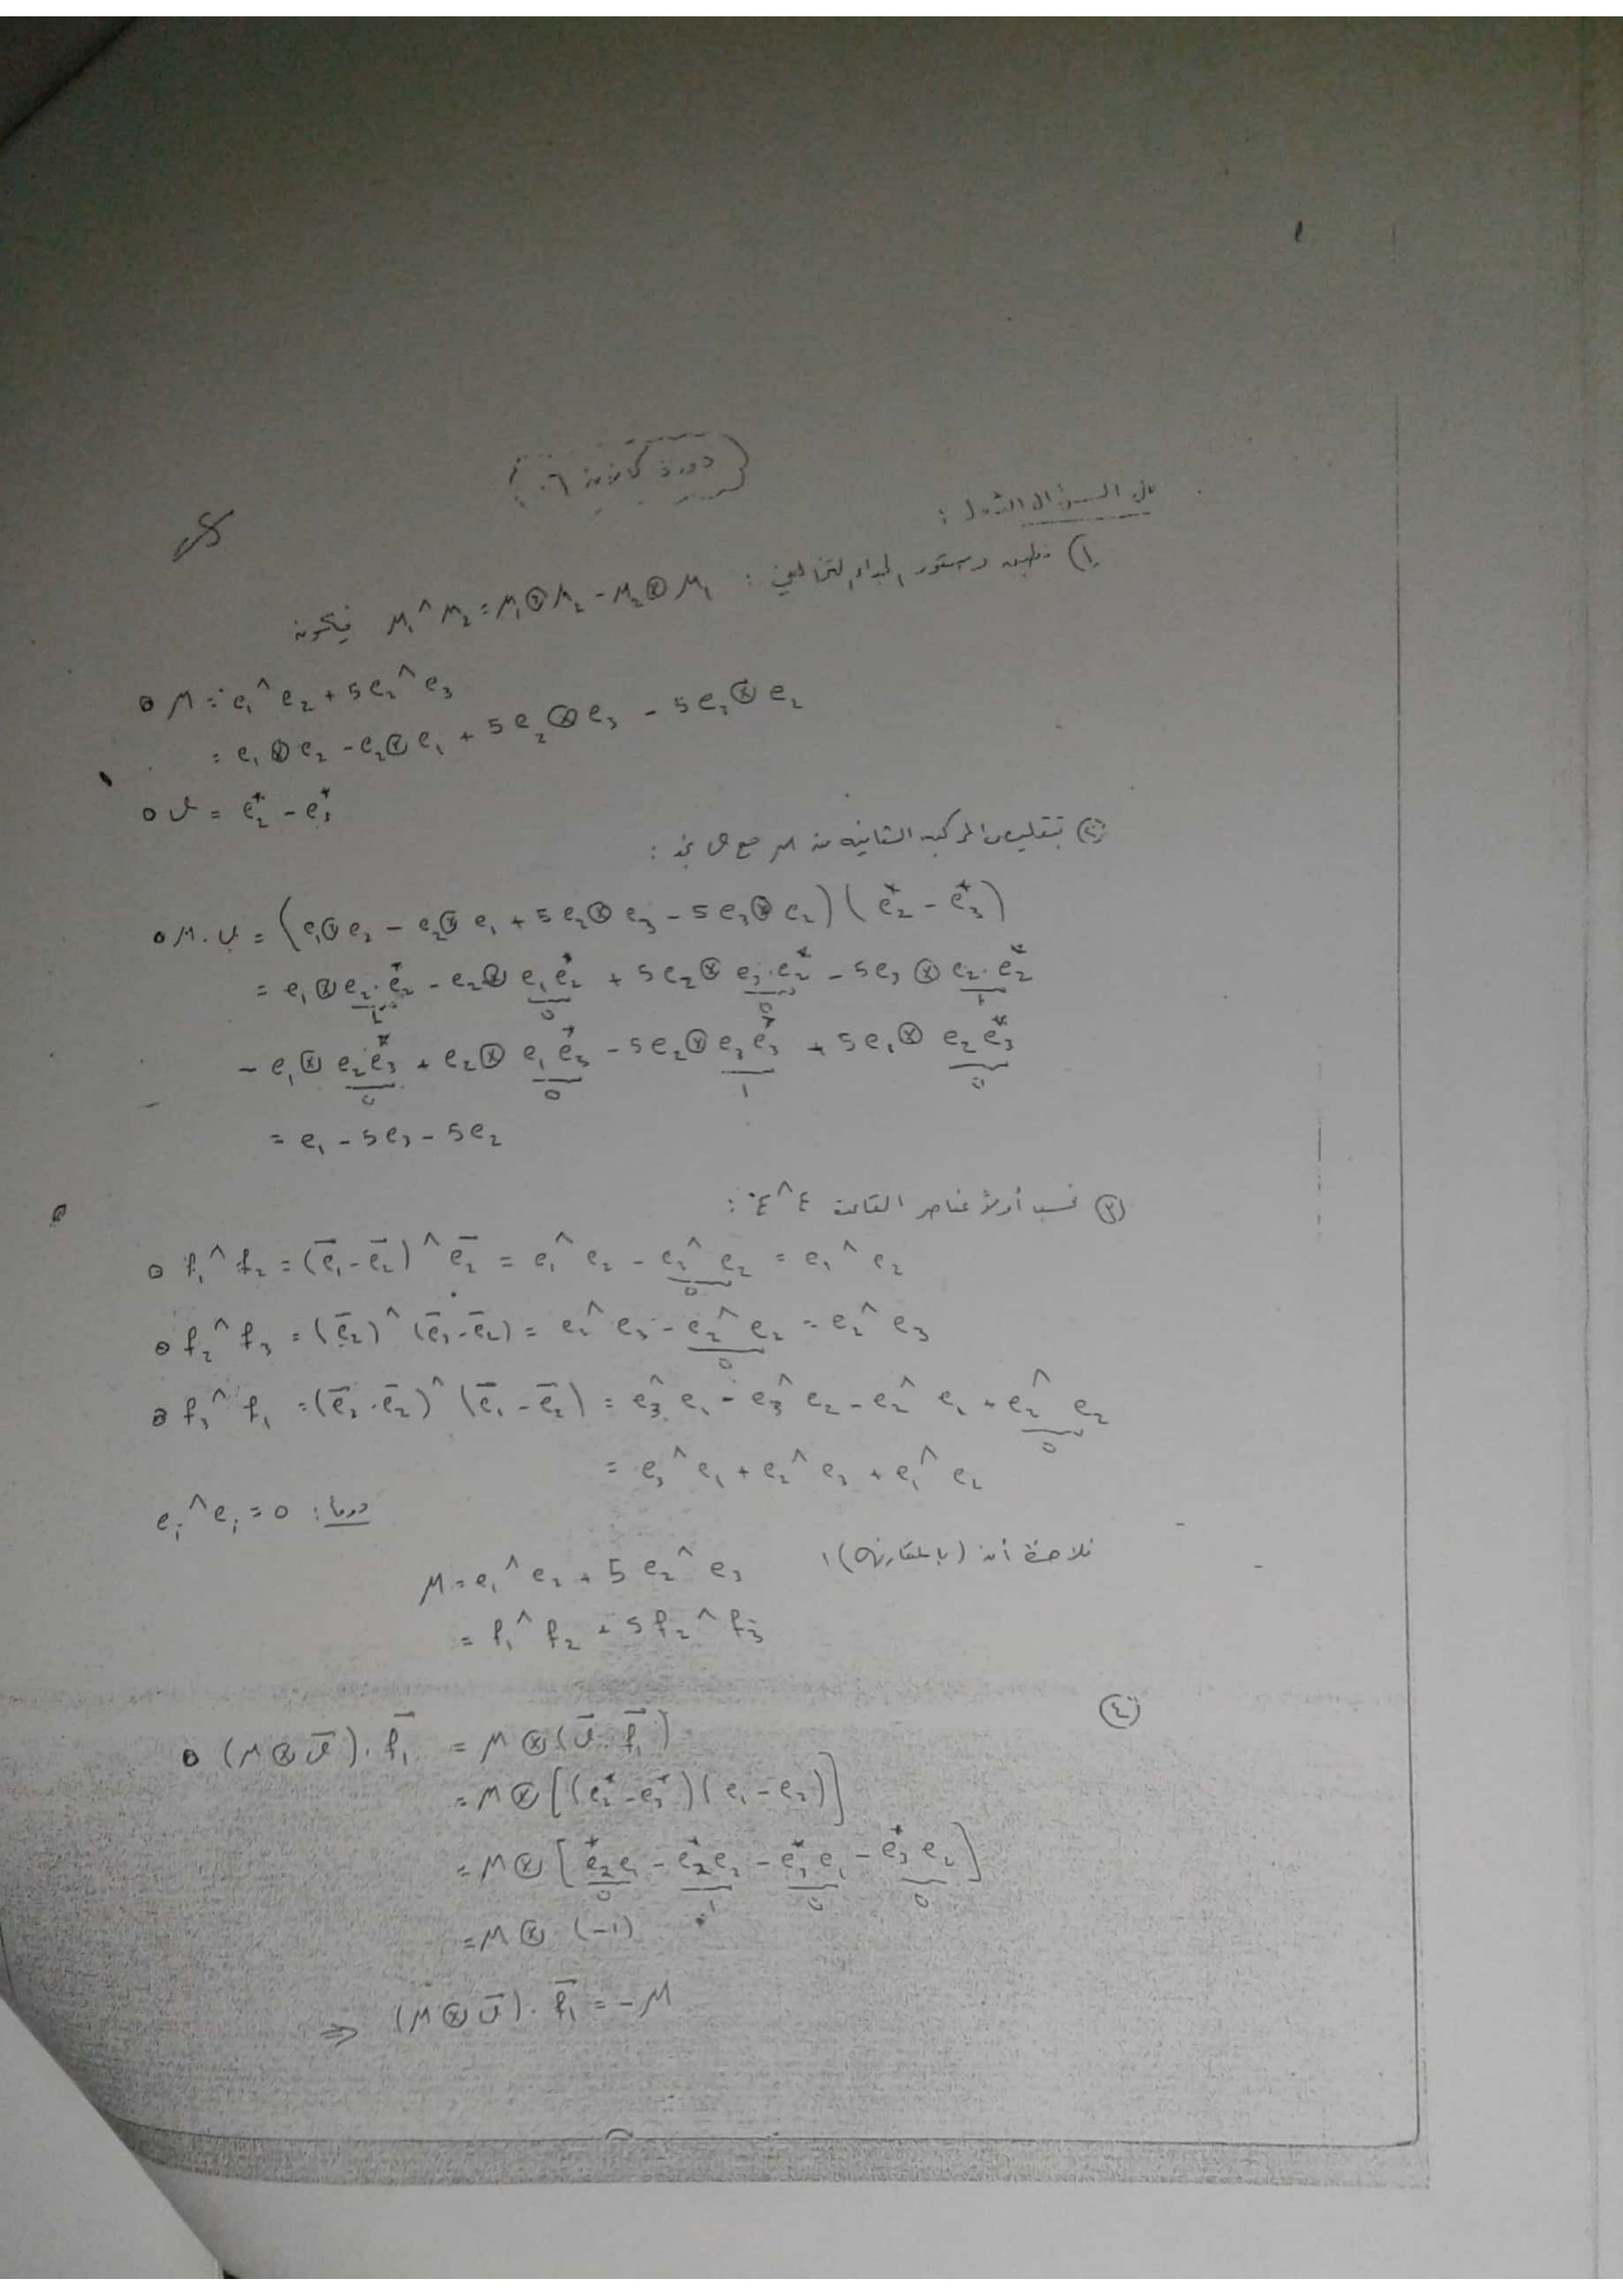 (دورة كانون ٠٦)
حل السؤال الأول :
١) نطبق دستور الجداء التخالفي : M₁ ^ M₂ = M₁ ⊗ M₂ - M₂ ⊗ M₁ فيكون
M = e₁ ^ e₂ + 5 e₂ ^ e₃
= e₁ ⊗ e₂ - e₂ ⊗ e₁ + 5 e₂ ⊗ e₃ - 5 e₃ ⊗ e₂
𝒱 = e₂* - e₃*
٢) بتقليص المركبة الثانية من M مع 𝒱 نجد :
M . 𝒱 = (e₁ ⊗ e₂ - e₂ ⊗ e₁ + 5 e₂ ⊗ e₃ - 5 e₃ ⊗ e₂) (e₂* - e₃*)
= e₁ ⊗ e₂ . e₂* - e₂ ⊗ e₁ e₂* + 5 e₂ ⊗ e₃ . e₂* - 5 e₃ ⊗ e₂ . e₂*
1 0 0 1
- e₁ ⊗ e₂ e₃* + e₂ ⊗ e₁ e₃* - 5 e₂ ⊗ e₃ e₃* + 5 e₃ ⊗ e₂ e₃*
0 0 1 0
= e₁ - 5 e₃ - 5 e₂
٣) نحسب أولاً عناصر القاعدة ع ^ ع :
f₁ ^ f₂ = (e̅₁ - e̅₂) ^ e̅₂ = e₁ ^ e₂ - e₂ ^ e₂ = e₁ ^ e₂
0
f₂ ^ f₃ = (e̅₂) ^ (e̅₃ - e̅₂) = e₂ ^ e₃ - e₂ ^ e₂ = e₂ ^ e₃
0
f₃ ^ f₁ = (e̅₃ - e̅₂) ^ (e̅₁ - e̅₂) = e₃ ^ e₁ - e₃ ^ e₂ - e₂ ^ e₁ + e₂ ^ e₂
0
= e₃ ^ e₁ + e₂ ^ e₃ + e₁ ^ e₂
دوماً : eᵢ ^ eᵢ = 0
نلاحظ أن (بالمقارنة) : M = e₁ ^ e₂ + 5 e₂ ^ e₃
= f₁ ^ f₂ + 5 f₂ ^ f₃
٤)
(M ⊗ 𝒱̅) . f̅₁ = M ⊗ (𝒱̅ . f̅₁)
= M ⊗ [(e₂* - e₃*) (e₁ - e₂)]
= M ⊗ [e₂* e₁ - e₂* e₂ - e₃* e₁ - e₃* e₂]
0 1 0 0
= M ⊗ (-1)
⇒ (M ⊗ 𝒱̅) . f̅₁ = - M